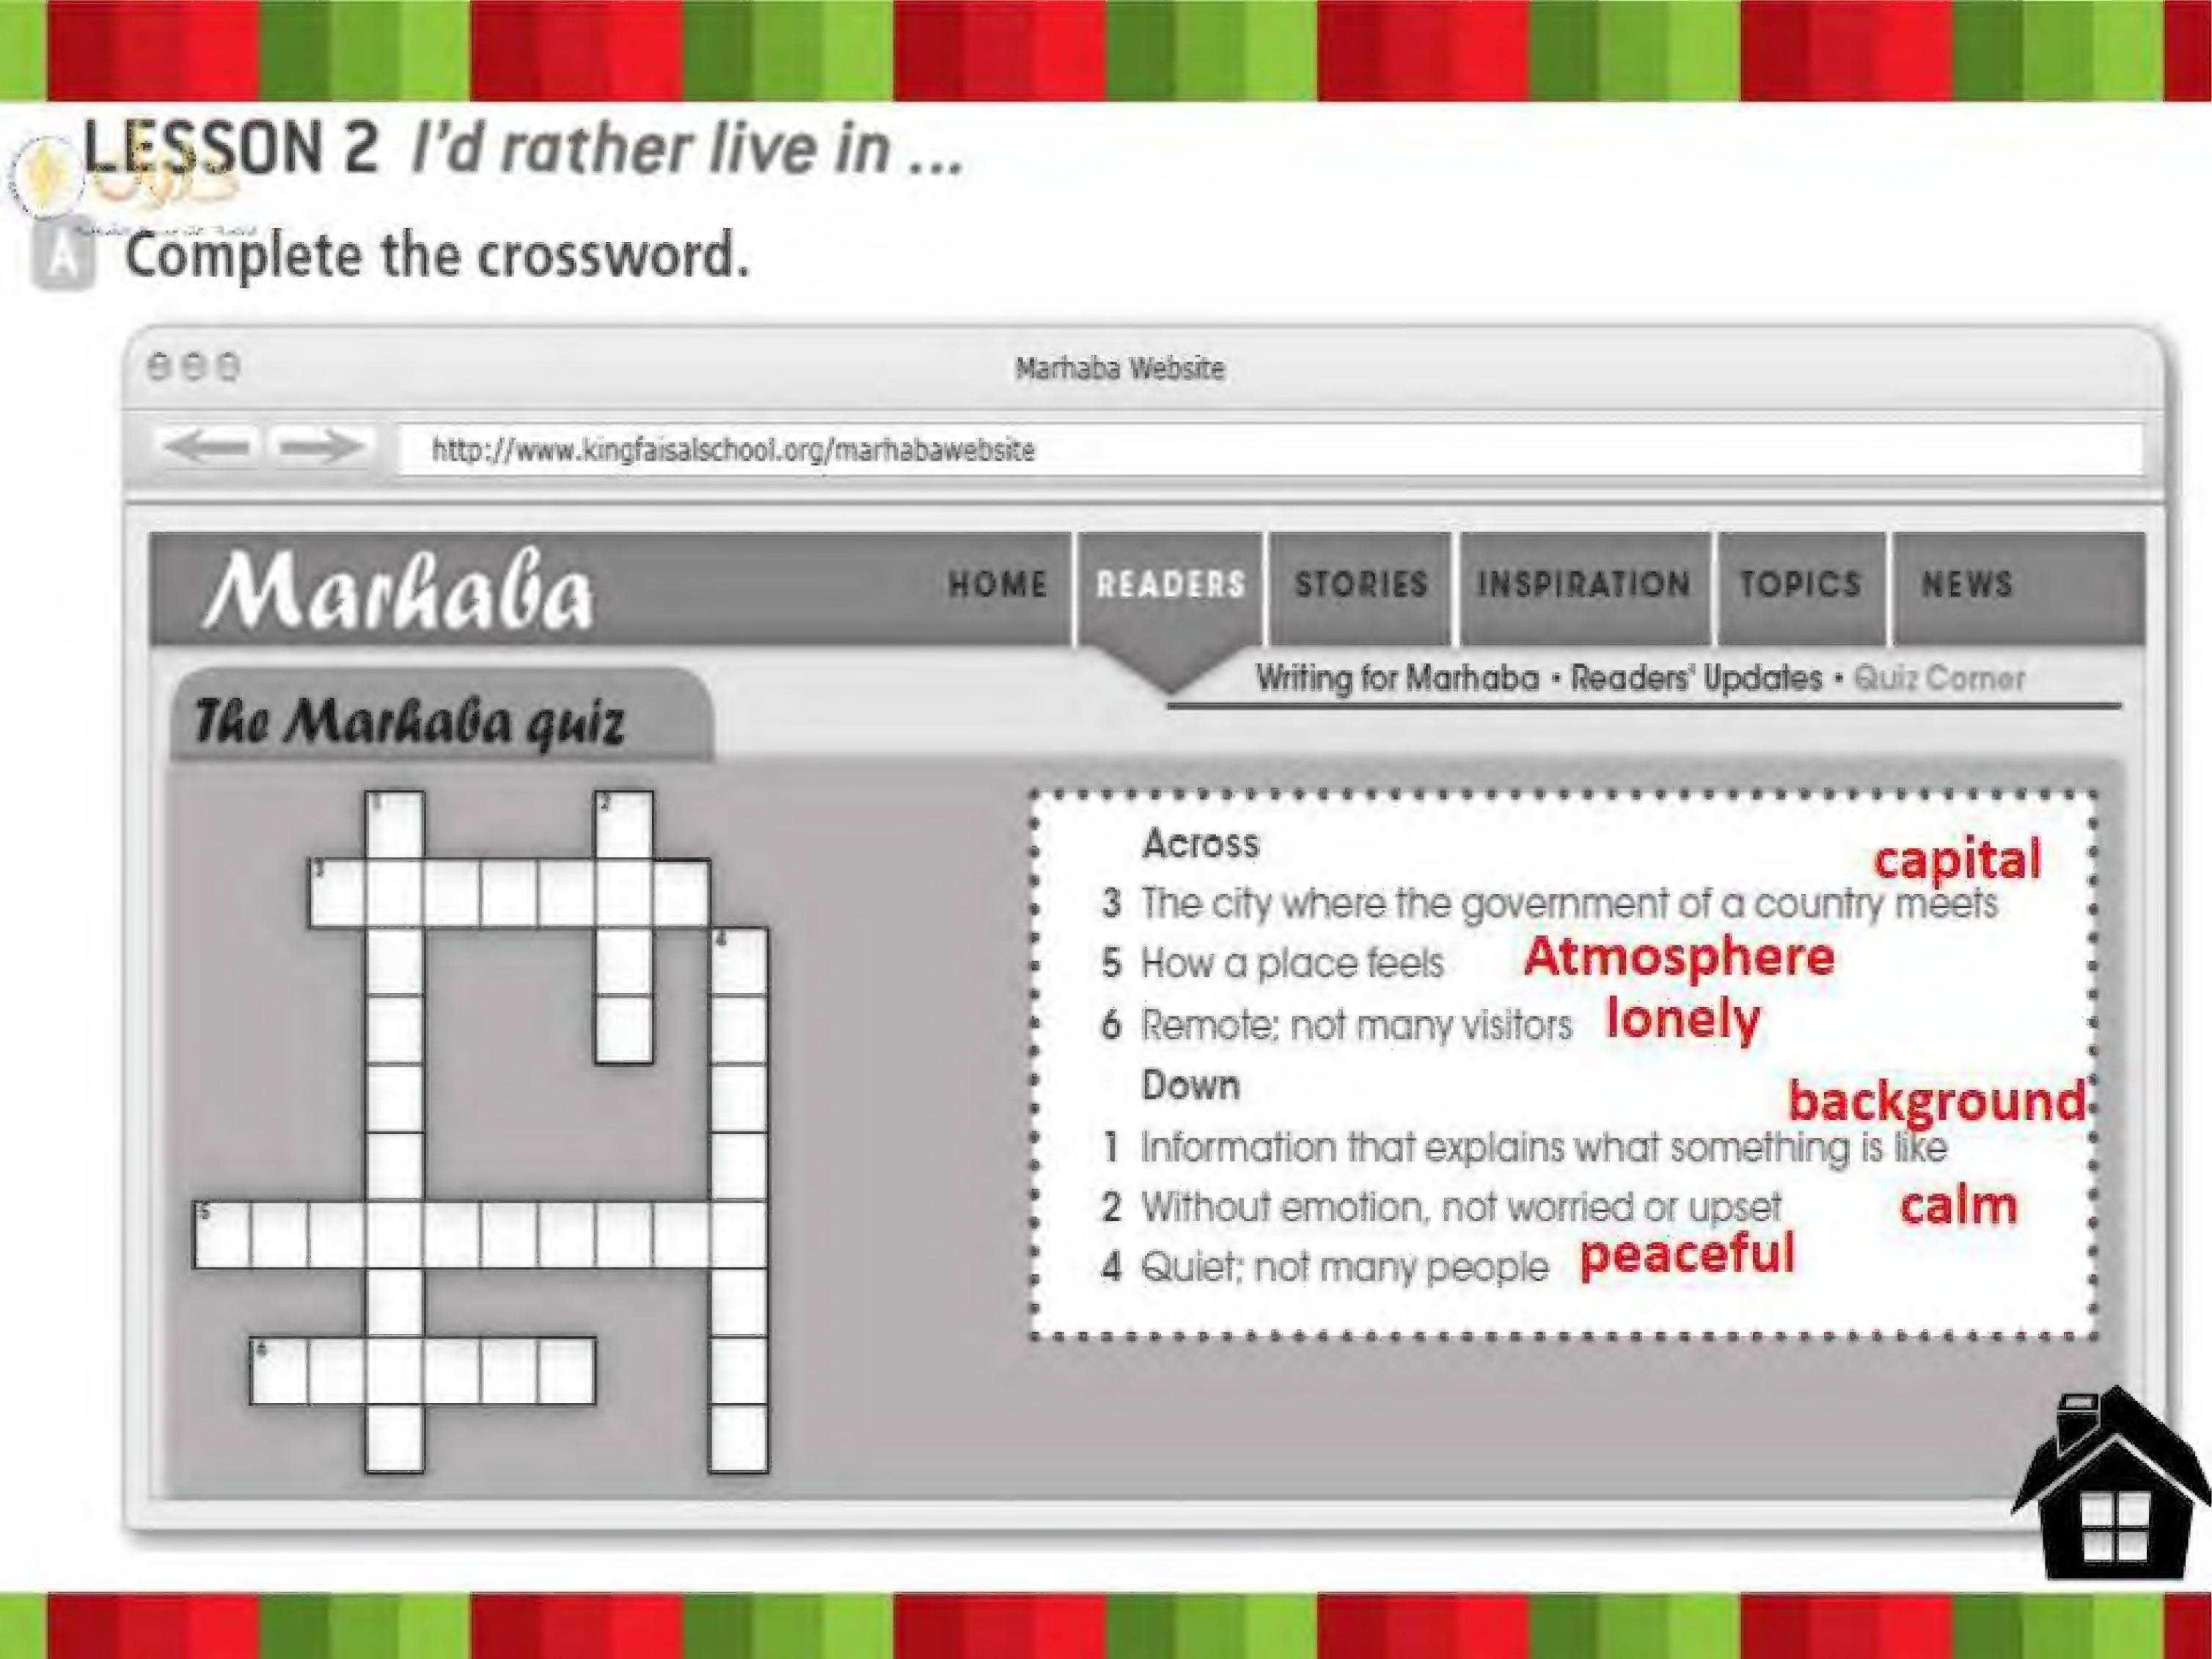 LESSON 2 I'd rather live in ...
A Complete the crossword.
Marhaba Website
http://www.kingfaisalschool.org/marhabawebsite
Marhaba HOME READERS STORIES INSPIRATION TOPICS NEWS
Writing for Marhaba • Readers' Updates • Quiz Corner
The Marhaba quiz
1 2
3
4
5
6
Across
capital
3 The city where the government of a country meets
5 How a place feels Atmosphere
6 Remote; not many visitors lonely
Down
background
1 Information that explains what something is like
2 Without emotion, not worried or upset calm
4 Quiet; not many people peaceful